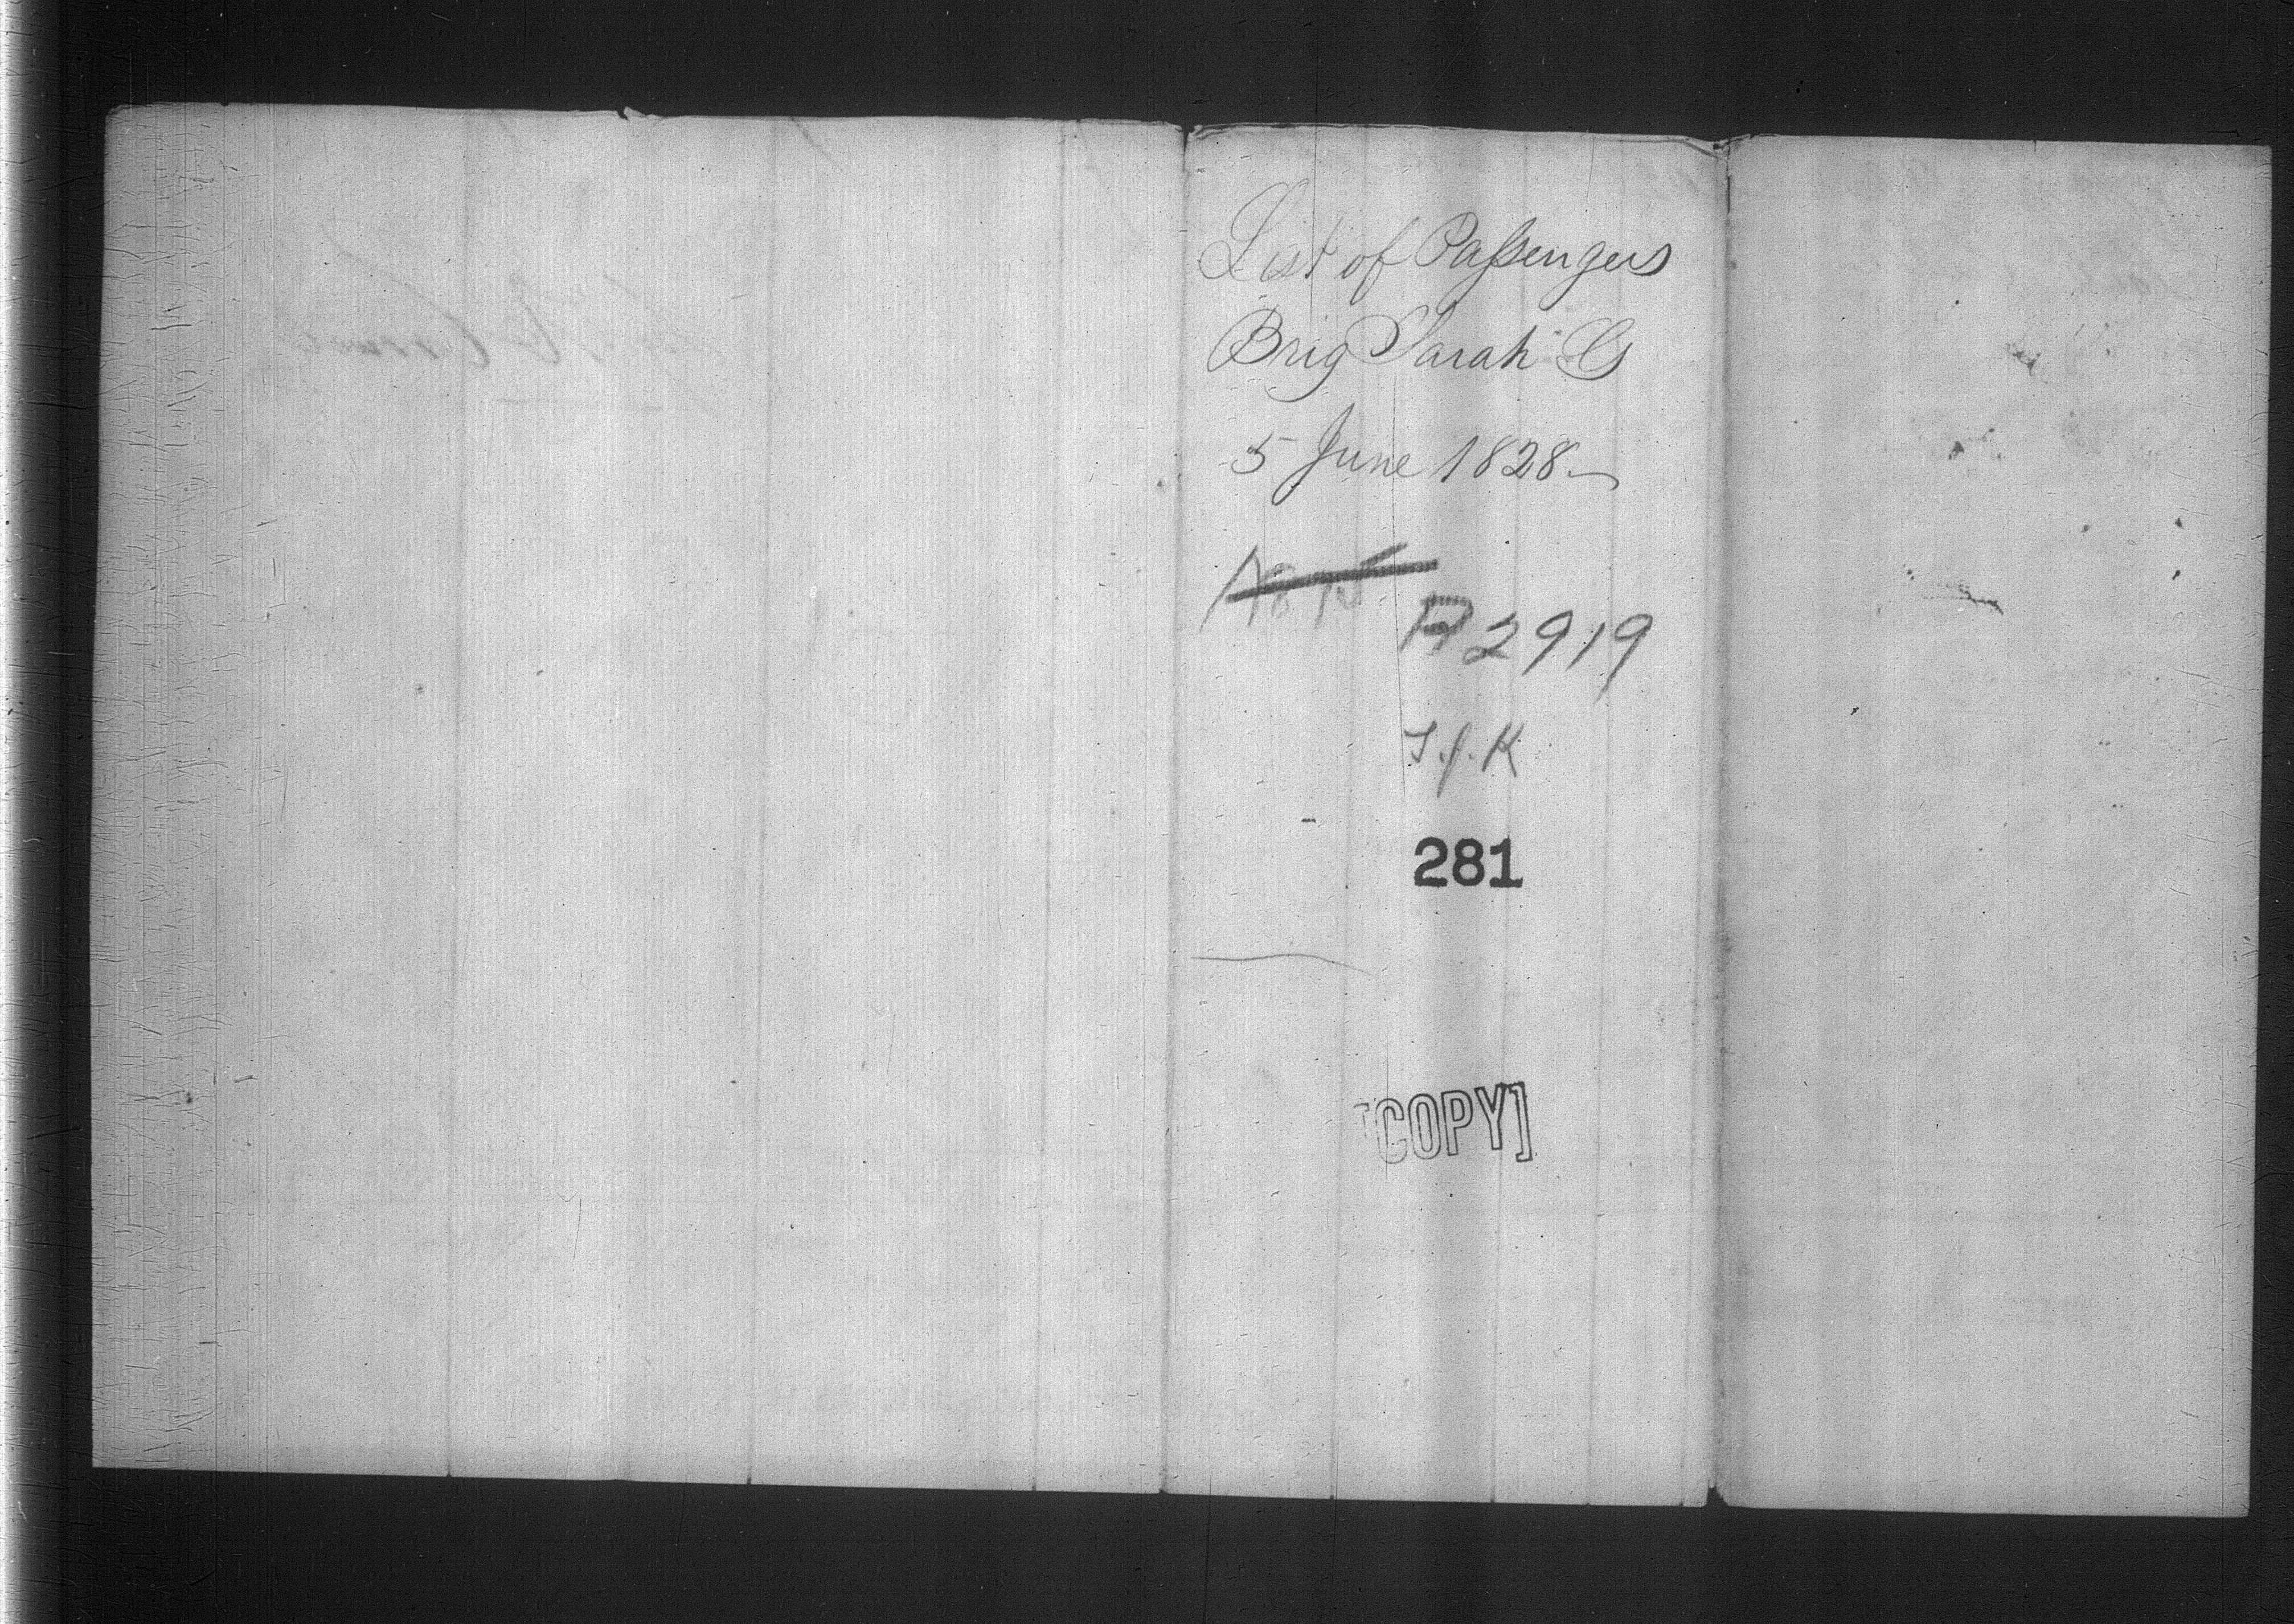 List of Passengers
Brig Sarah G
5 June 1828
A2919
281
[COPY]